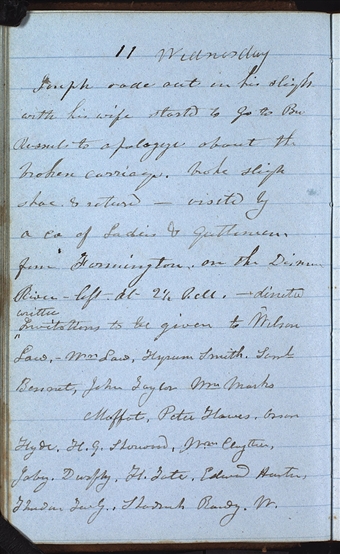 11 Wednesday
Joseph rode out in his sleigh
with his wife started to go to Bro
Russels to apologize about the
broken carriage. broke sleigh
shoe & returned — visited by
a co of Ladies & Gentlemen
from Farmington, on the Demoin
River - left at 2½ P.M. — directed
written
"Invitations to be given to Wilson
Law, - Wm Law, Hyrum Smith.
Bennet, John Taylor Wm Marks
Moffat, Peter Hawes. Orson
Hyde, H. G. Sherwood, Wm Clayton,
Jabez Durphy, H. Tate, Edward Hunter,
Theodore Tur, Shadrach Roundy, W.